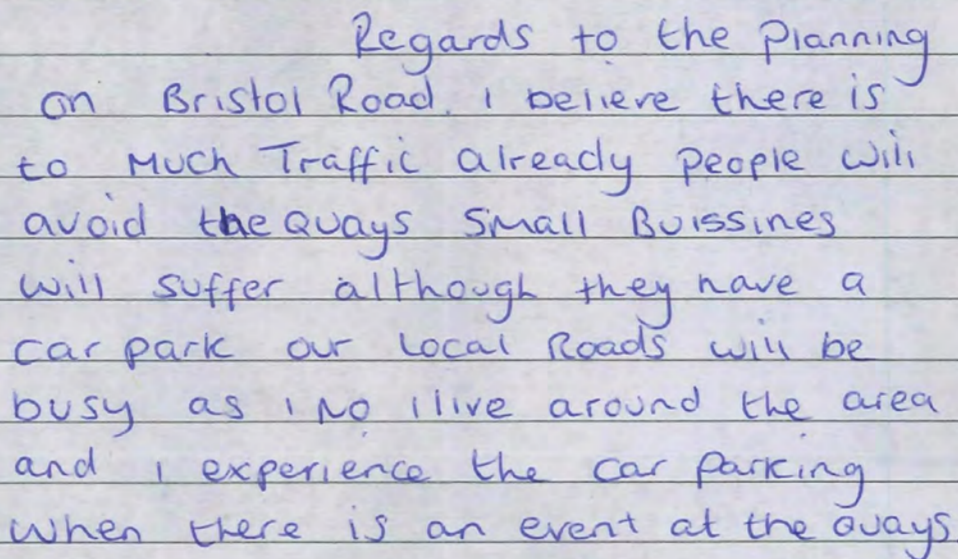 Regards to the Planning
on Bristol Road. I believe there is
to Much Traffic already people will
avoid the Quays Small Buissines
will suffer although they have a
car park our Local Roads will be
busy as i no i live around the area
and i experience the car parking
when there is an event at the Quays